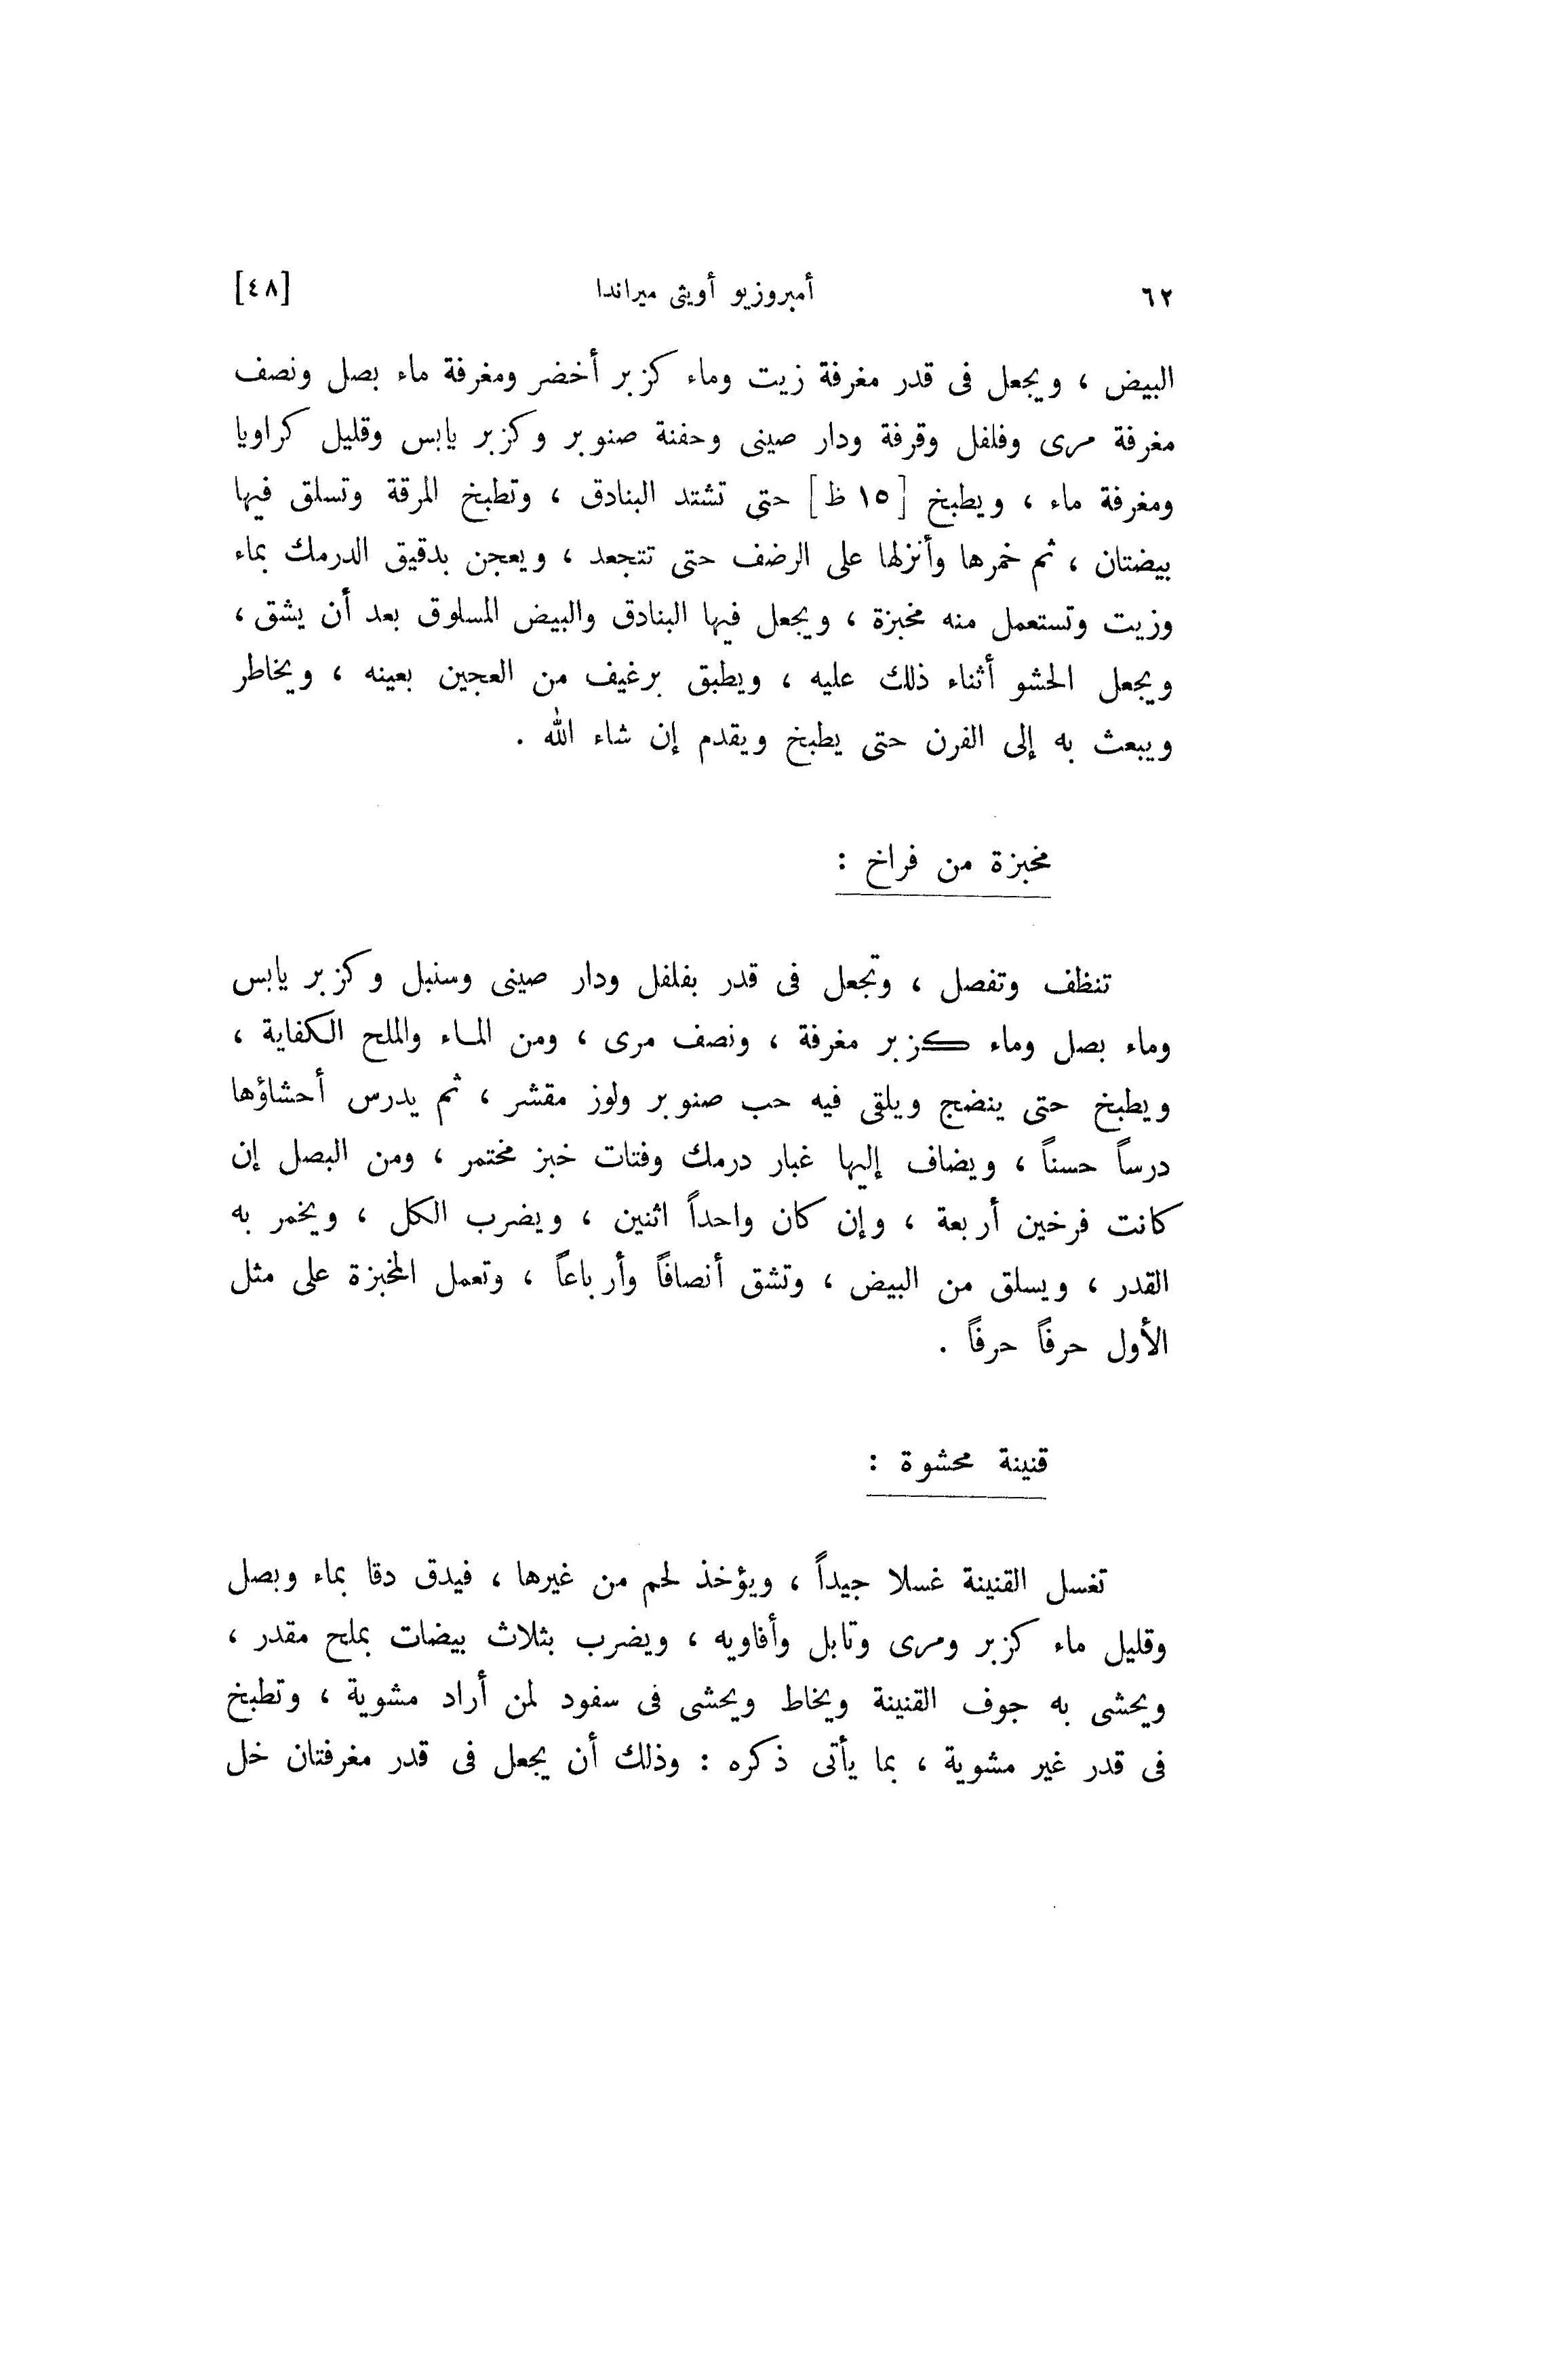 ٦٢ أمبروزيو أويثى ميراندا [٤٨]
البيض ، ويجعل فى قدر مغرفة زيت وماء كزبر أخضر ومغرفة ماء بصل ونصف
مغرفة مرى وفلفل وقرفة ودار صينى وحفنة صنوبر وكزبر يابس وقليل كراويا
ومغرفة ماء ، ويطبخ [١٥ ظ] حتى تشتد البنادق ، وتطبخ المرقة وتسلق فيها
بيضتان ، ثم خمرها وأنزلها على الرضف حتى تتجعد ، ويعجن بدقيق الدرمك بماء
وزيت وتستعمل منه مخبزة ، ويجعل فيها البنادق والبيض المسلوق بعد أن يشق ،
ويجعل الحشو أثناء ذلك عليه ، ويطبق برغيف من العجين بعينه ، ويخاطر
ويبعث به إلى الفرن حتى يطبخ ويقدم إن شاء الله .
مخبزة من فراخ :
تنظف وتفصل ، وتجعل فى قدر بفلفل ودار صينى وسنبل وكزبر يابس
وماء بصل وماء كزبر مغرفة ، ونصف مرى ، ومن الماء والملح الكفاية ،
ويطبخ حتى ينضج ويلقى فيه حب صنوبر ولوز مقشر ، ثم يدرس أحشاؤها
درساً حسناً ، ويضاف إليها غبار درمك وفتات خبز مختمر ، ومن البصل إن
كانت فرخين أربعة ، وإن كان واحداً اثنين ، ويضرب الكل ، ويخمر به
القدر ، ويسلق من البيض ، وتشق أنصافاً وأرباعاً ، وتعمل المخبزة على مثل
الأول حرفاً حرفاً .
قنينة محشوة :
تغسل القنينة غسلا جيداً ، ويؤخذ لحم من غيرها ، فيدق دقا بماء وبصل
وقليل ماء كزبر ومرى وتابل وأفاويه ، ويضرب بثلاث بيضات بملح مقدر ،
ويحشى به جوف القنينة ويخاط ويحشى فى سفود لمن أراد مشوية ، وتطبخ
فى قدر غير مشوية ، بما يأتى ذكره : وذلك أن يجعل فى قدر مغرفتان خل